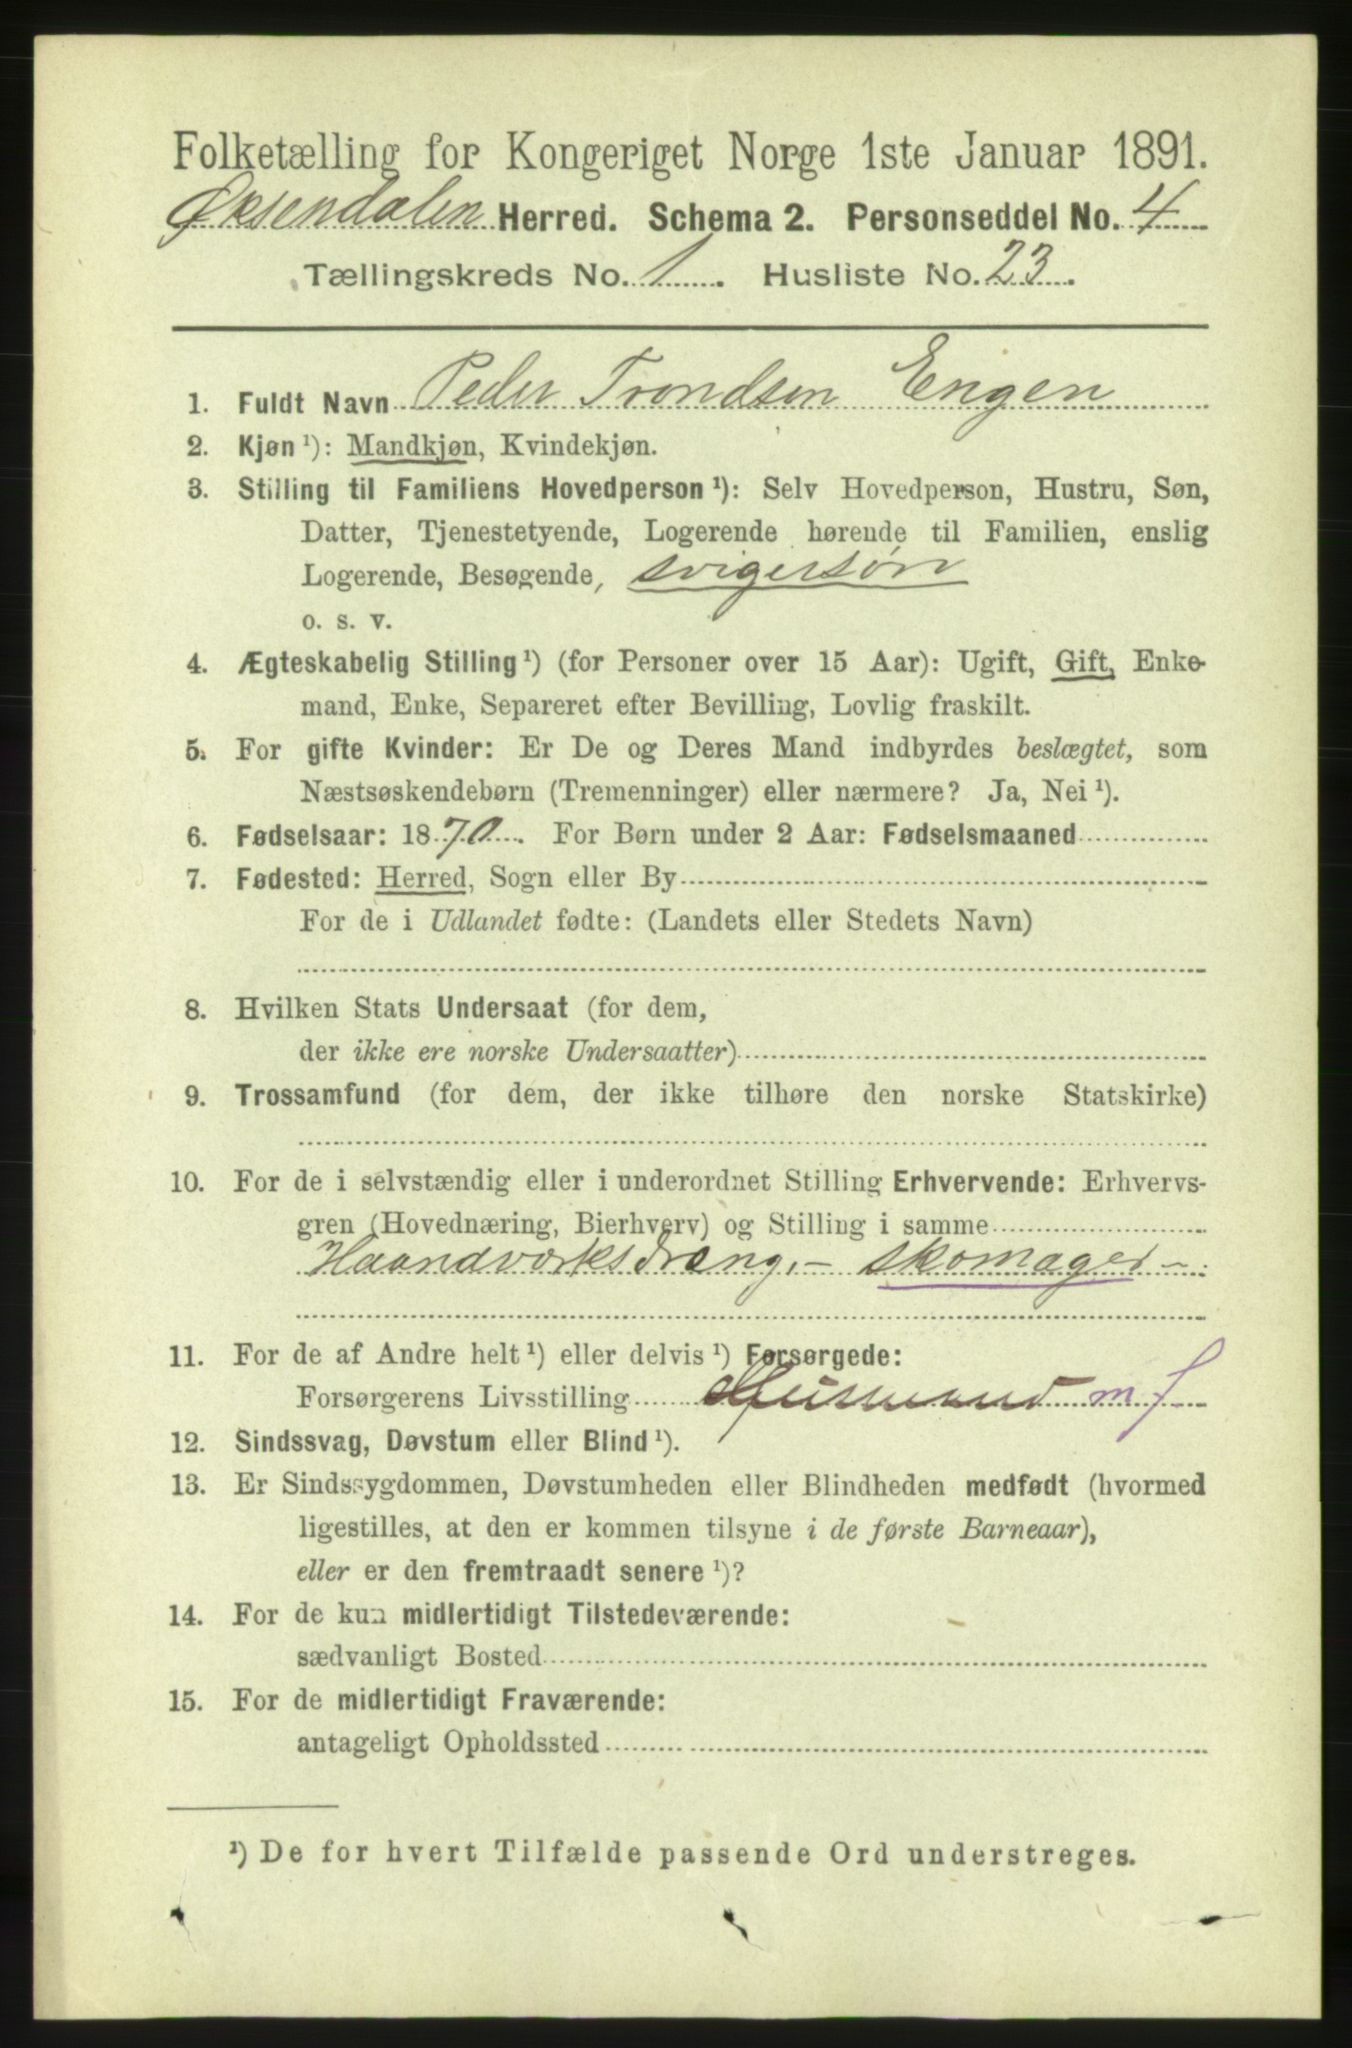 Folketælling for Kongeriget Norge 1ste Januar 1891.
Øksendalen Herred. Schema 2. Personseddel No. 4
Tællingskreds No. 1. Husliste No. 23.
1. Fuldt Navn Peder Trondsen Engen
2. Kjøn ¹): Mandkjøn, Kvindekjøn.
3. Stilling til Familiens Hovedperson ¹): Selv Hovedperson, Hustru, Søn,
Datter, Tjenestetyende, Logerende hørende til Familien, enslig
Logerende, Besøgende, svigersøn
o. s. v.
4. Ægteskabelig Stilling ¹) (for Personer over 15 Aar): Ugift, Gift, Enke-
mand, Enke, Separeret efter Bevilling, Lovlig fraskilt.
5. For gifte Kvinder: Er De og Deres Mand indbyrdes beslægtet, som
Næstsøskendebørn (Tremenninger) eller nærmere? Ja, Nei ¹).
6. Fødselsaar: 1870. For Børn under 2 Aar: Fødselsmaaned
7. Fødested: Herred, Sogn eller By
For de i Udlandet fødte: (Landets eller Stedets Navn)
8. Hvilken Stats Undersaat (for dem,
der ikke ere norske Undersaatter)
9. Trossamfund (for dem, der ikke tilhøre den norske Statskirke)
10. For de i selvstændig eller i underordnet Stilling Erhvervende: Erhvervs-
gren (Hovednæring, Bierhverv) og Stilling i samme
Haandværksdræng,- skomager -
11. For de af Andre helt ¹) eller delvis ¹) Forsørgede:
Forsørgerens Livsstilling Husmand m f
12. Sindssvag, Døvstum eller Blind ¹).
13. Er Sindssygdommen, Døvstumheden eller Blindheden medfødt (hvormed
ligestilles, at den er kommen tilsyne i de første Barneaar),
eller er den fremtraadt senere ¹)?
14. For de kun midlertidigt Tilstedeværende:
sædvanligt Bosted
15. For de midlertidigt Fraværende:
antageligt Opholdssted
¹) De for hvert Tilfælde passende Ord understreges.